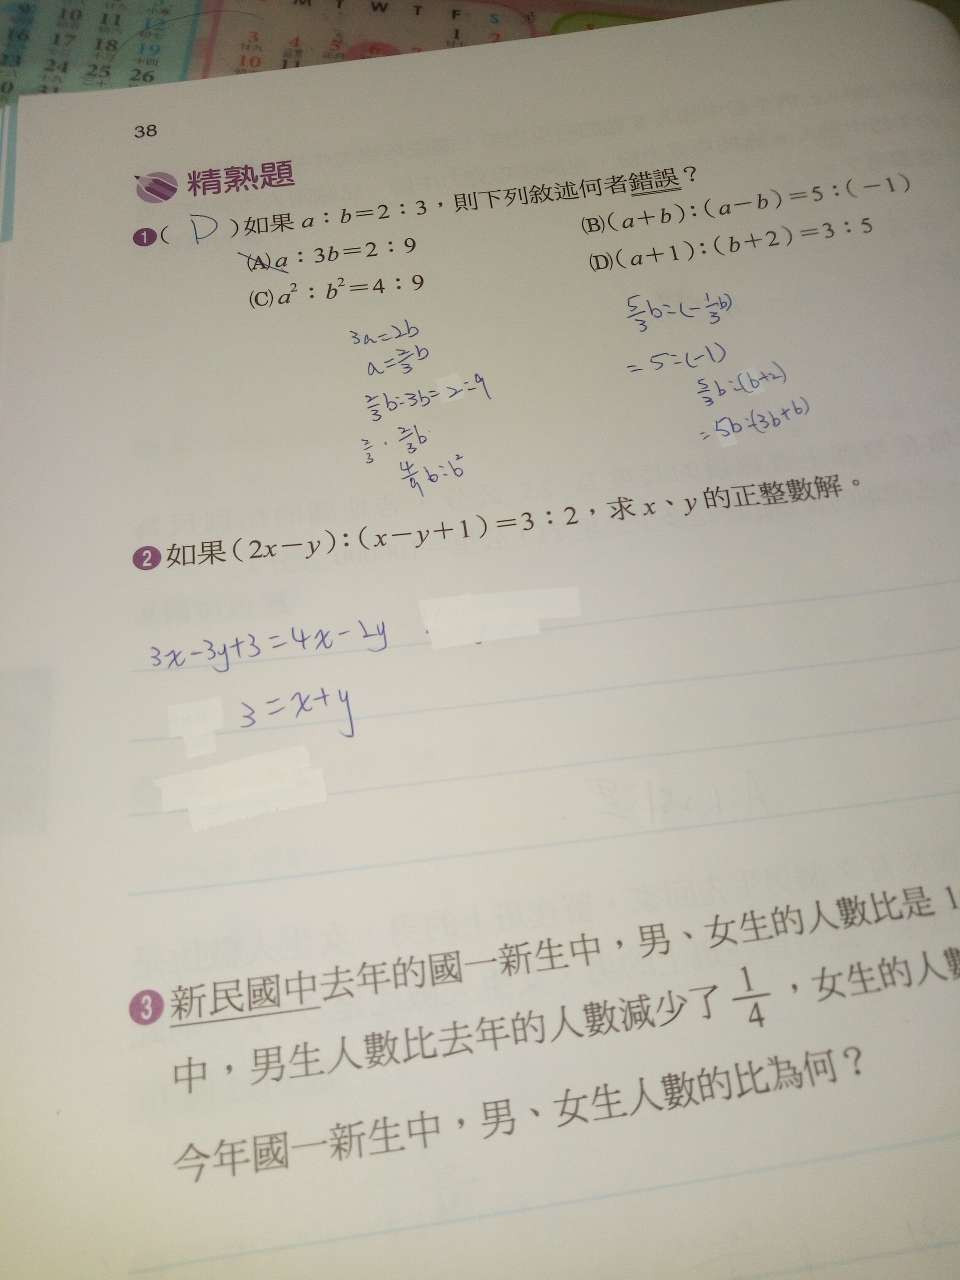 M T W T F S
9 10 11 12 1 2
16 17 18 19 3 4 5 6 7
23 24 25 26 10 11
38
精熟題
1( D )如果 a：b＝2：3，則下列敘述何者錯誤？
(A) a：3b＝2：9 (B)(a＋b)：(a－b)＝5：(－1)
(C) a²：b²＝4：9 (D)(a＋1)：(b＋2)＝3：5
3a=2b
a=2/3 b
2/3 b:3b=2:9
2/3 · 2/3 b
4/9 b:b²
5/3 b:(-1/3 b)
=5:(-1)
5/3 b:(b+2)
=5b:(3b+6)
2 如果(2x－y)：(x－y＋1)＝3：2，求 x、y 的正整數解。
3x-3y+3=4x-2y
3=x+y
3 新民國中去年的國一新生中，男、女生的人數比是 1
中，男生人數比去年的人數減少了 1/4，女生的人數
今年國一新生中，男、女生人數的比為何？